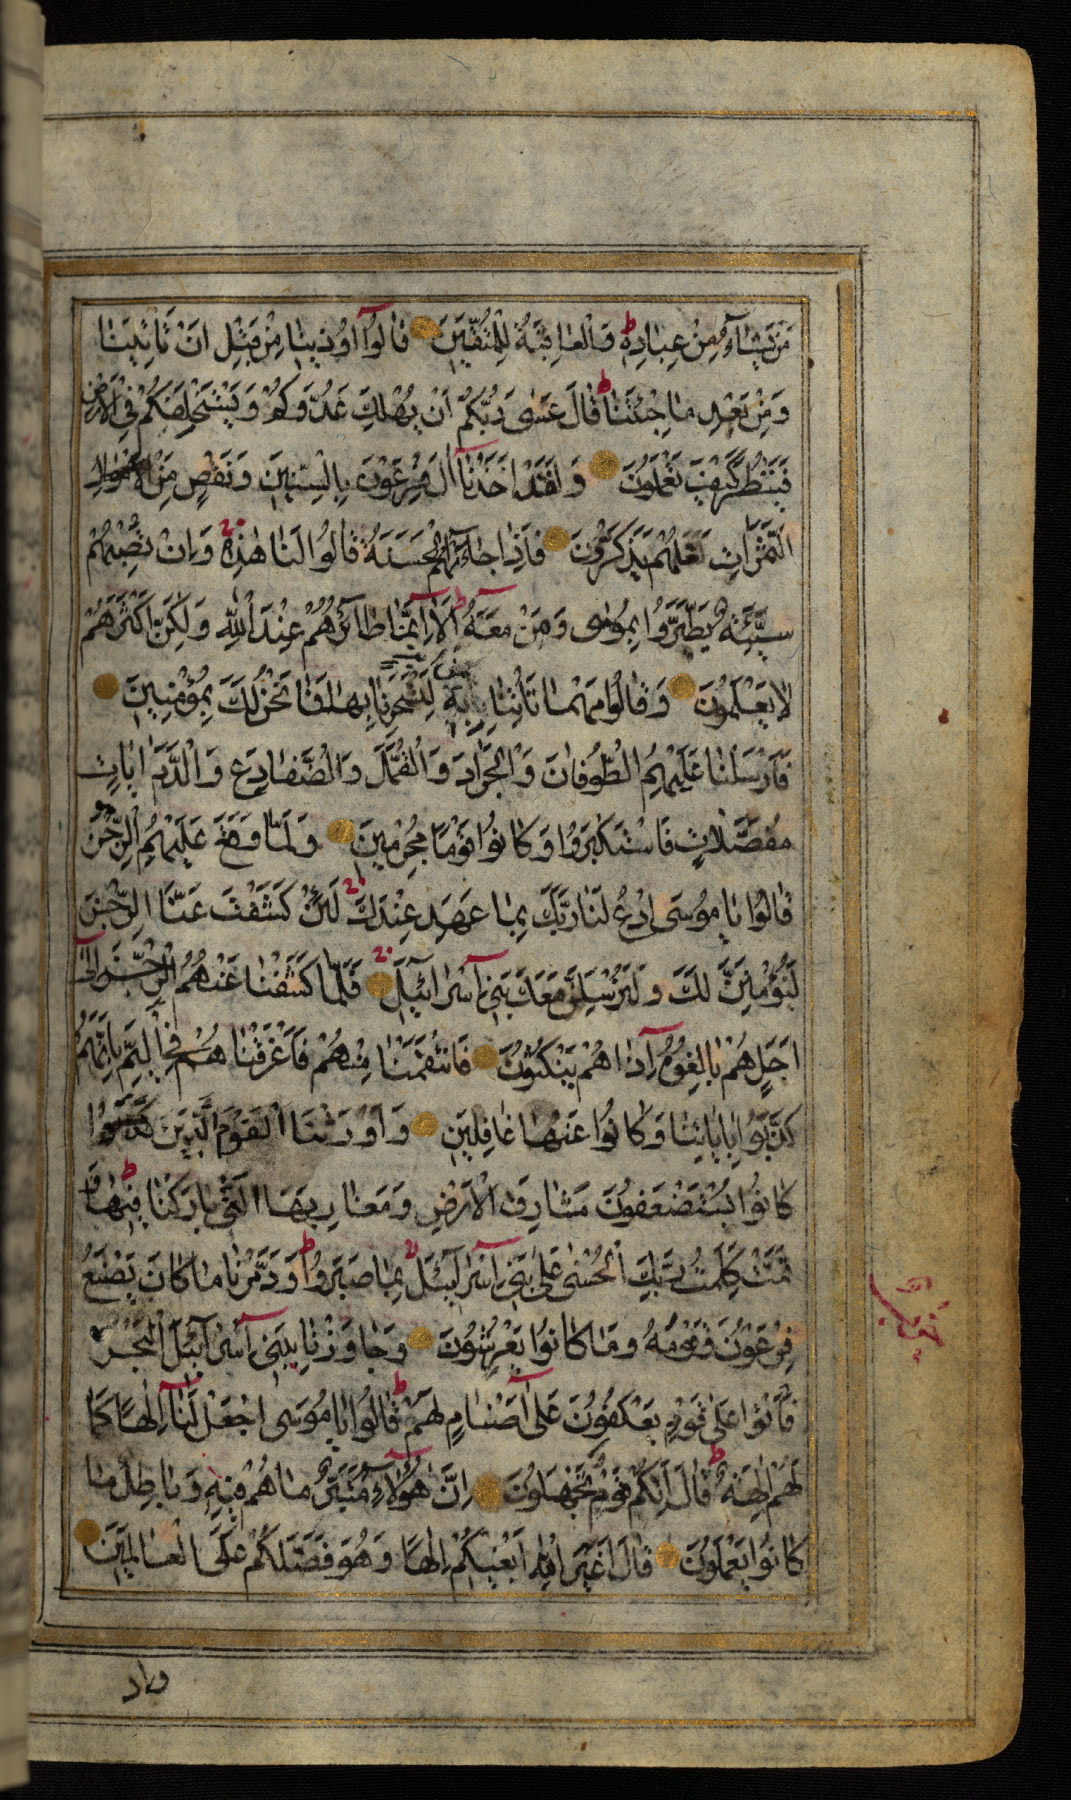 مَنْ يَشَآءُ مِنْ عِبَادِهٖ وَالْعَاقِبَةُ لِلْمُتَّقِينَ قَالُوٓا اُوذِينَا مِنْ قَبْلِ اَنْ تَاْتِيَنَا
وَمِنْ بَعْدِ مَا جِئْتَنَا قَالَ عَسٰى رَبُّكُمْ اَنْ يُهْلِكَ عَدُوَّكُمْ وَيَسْتَخْلِفَكُمْ فِى الْاَرْضِ
فَيَنْظُرَ كَيْفَ تَعْمَلُونَ وَلَقَدْ اَخَذْنَآ اٰلَ فِرْعَوْنَ بِالسِّنِينَ وَنَقْصٍ مِنَ
الثَّمَرَاتِ لَعَلَّهُمْ يَذَّكَّرُونَ فَاِذَا جَآءَتْهُمُ الْحَسَنَةُ قَالُوا لَنَا هٰذِهٖ وَاِنْ تُصِبْهُمْ
سَيِّئَةٌ يَطَّيَّرُوا بِمُوسٰى وَمَنْ مَعَهُ اَلَآ اِنَّمَا طَآئِرُهُمْ عِنْدَ اللهِ وَلٰكِنَّ اَكْثَرَهُمْ
لَا يَعْلَمُونَ وَقَالُوا مَهْمَا تَاْتِنَا بِهٖ لِتَسْحَرَنَا بِهَا فَمَا نَحْنُ لَكَ بِمُؤْمِنِينَ
فَاَرْسَلْنَا عَلَيْهِمُ الطُّوفَانَ وَالْجَرَادَ وَالْقُمَّلَ وَالضَّفَادِعَ وَالدَّمَ اٰيَاتٍ
مُفَصَّلَاتٍ فَاسْتَكْبَرُوا وَكَانُوا قَوْمًا مُجْرِمِينَ وَلَمَّا وَقَعَ عَلَيْهِمُ الرِّجْزُ
قَالُوا يَا مُوسَى ادْعُ لَنَا رَبَّكَ بِمَا عَهِدَ عِنْدَكَ لَئِنْ كَشَفْتَ عَنَّا الرِّجْزَ
لَنُؤْمِنَنَّ لَكَ وَلَنُرْسِلَنَّ مَعَكَ بَنِىٓ اِسْرَآئِيلَ فَلَمَّا كَشَفْنَا عَنْهُمُ الرِّجْزَ اِلٰٓى
اَجَلٍ هُمْ بَالِغُوهُ اِذَا هُمْ يَنْكُثُونَ فَانْتَقَمْنَا مِنْهُمْ فَاَغْرَقْنَاهُمْ فِى الْيَمِّ بِاَنَّهُمْ
كَذَّبُوا بِاٰيَاتِنَا وَكَانُوا عَنْهَا غَافِلِينَ وَاَوْرَثْنَا الْقَوْمَ الَّذِينَ
كَانُوا يُسْتَضْعَفُونَ مَشَارِقَ الْاَرْضِ وَمَغَارِبَهَا الَّتِى بَارَكْنَا فِيهَا وَ
تَمَّتْ كَلِمَتُ رَبِّكَ الْحُسْنٰى عَلٰى بَنِىٓ اِسْرَآئِيلَ بِمَا صَبَرُوا وَدَمَّرْنَا مَا كَانَ يَصْنَعُ
فِرْعَوْنُ وَقَوْمُهُ وَمَا كَانُوا يَعْرِشُونَ وَجَاوَزْنَا بِبَنِىٓ اِسْرَآئِيلَ الْبَحْرَ
فَاَتَوْا عَلٰى قَوْمٍ يَعْكُفُونَ عَلٰٓى اَصْنَامٍ لَهُمْ قَالُوا يَا مُوسَى اجْعَلْ لَنَآ اِلٰهًا كَمَا
لَهُمْ اٰلِهَةٌ قَالَ اِنَّكُمْ قَوْمٌ تَجْهَلُونَ اِنَّ هٰٓؤُلَآءِ مُتَبَّرٌ مَا هُمْ فِيهِ وَبَاطِلٌ مَا
كَانُوا يَعْمَلُونَ قَالَ اَغَيْرَ اللهِ اَبْغِيكُمْ اِلٰهًا وَهُوَ فَضَّلَكُمْ عَلَى الْعَالَمِينَ
واد